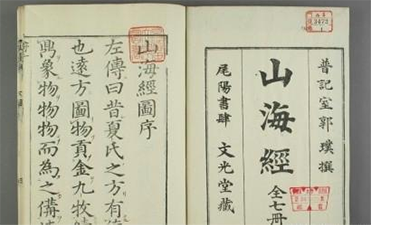 晉記室郭璞撰
山海經 全七冊
尾陽書肆 文光堂藏
3473
山海經圖序
左傳曰昔夏氏之方有
也遠方圖物貢金九牧
象物物物而為之備